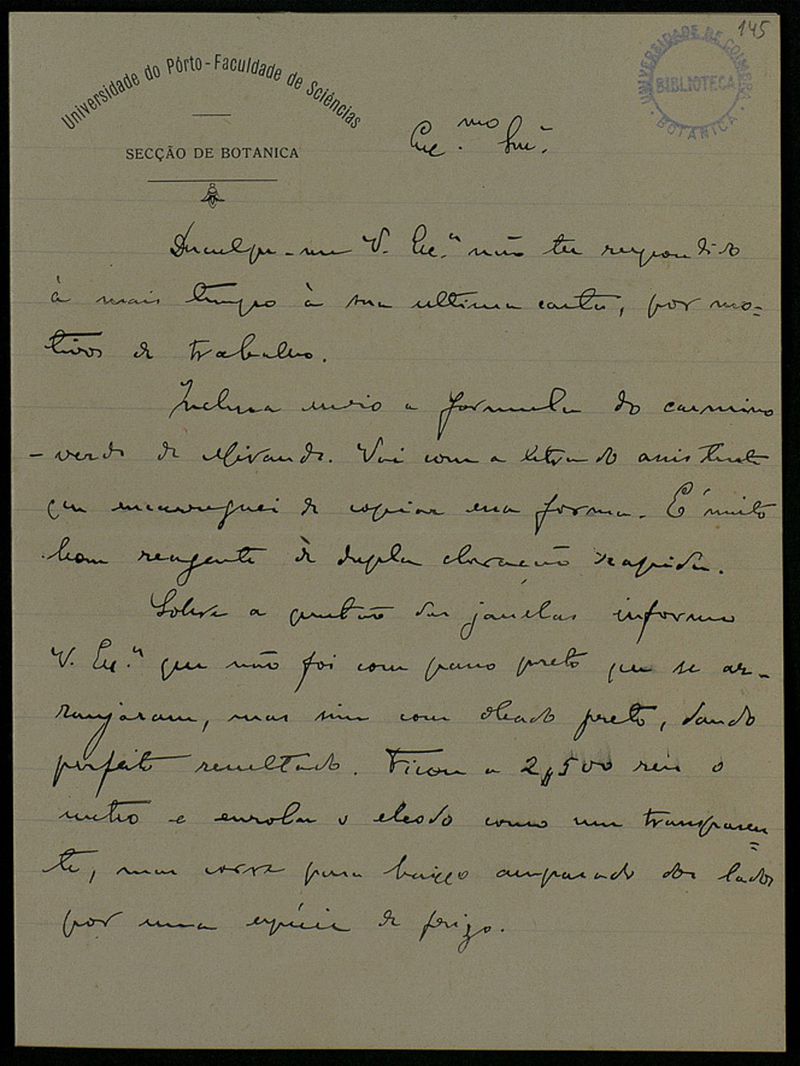 145
UNIVERSIDADE DE COIMBRA
BIBLIOTECA
BOTANICA
Universidade do Pôrto - Faculdade de Sciências
SECÇÃO DE BOTANICA
Exc.mo Snr.
Desculpe-me V. Exc.a não ter respondido
à mais tempo à sua ultima carta, por mo=
tivos de trabalho.
Inclusa envio a formula do carmino
-verde de Mirande. Vai com a letra do assistente
que encarreguei de copiar essa forma. É muito
bom reagente de dupla coloração rapida.
Sobre a questão das janelas informo
V. Exc.a que não foi com pano preto que se ar-
ranjaram, mas sim com oleado preto, dando
perfeito resultado. Ficou a 2$500 reis o
metro e enrola o oleado como um transparen=
te, mas corre para baixo amparado dos lados
por uma espécie de frizo.